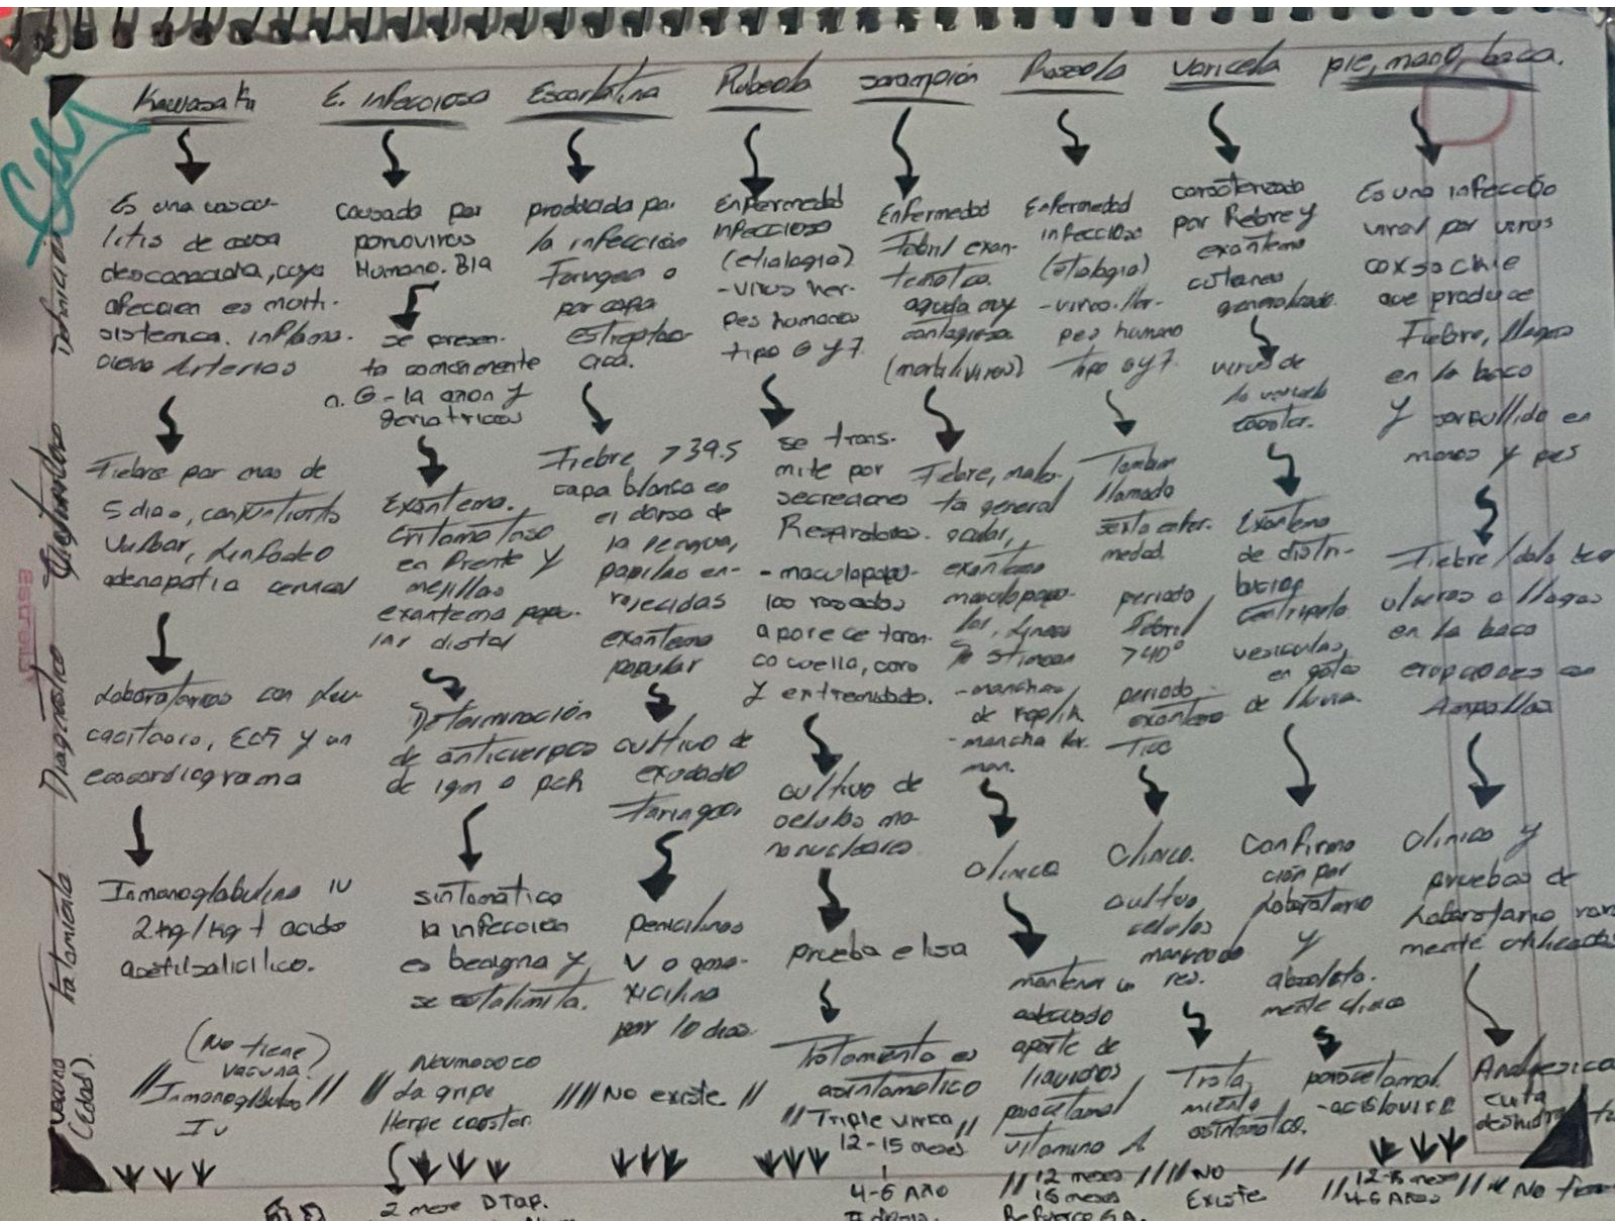 Kawasaki
Es una vascu-
litis de causa
desconocida, cuya
afeccion es multi-
sistemica. inflama-
ciono Arterias
Fiebre por mas de
5 dias, conjuntivitis
bulbar, Linfadeo
adenopatia cervical
Laboratorios con Leu-
cocitosis, ECG y un
ecocardiograma
Inmonoglobulina IV
2 kg/kg + acido
acetilsalicilico.
(No tiene)
vacuna.
// Inmonoglobulina //
IV
E. infecciosa
causada por
parvovirus
Humano. B19
se presen-
ta comunmente
geriatricos
Exantema.
Eritematoso
en frente y
mejillas
exantema papu-
lar distal
Determinación
de anticuerpos
de igm o pcR
sintomatico
la infección
es benigna y
se autolimita.
Neumococo
// La gripe
Herpe zooster.
2 mese DTap.
Escarlatina
producida por
la infección
Faringea o
por capa
estreptoco-
cica.
Fiebre >39.5
capa blanca en
el dorso de
la lengua,
papilas en-
rojecidas
exantema
papular
cultivo de
exudado
Faringeo.
penicilinas
V o amo-
xicilina
por 10 dias.
//// No existe //
Rubeola
Enfermedad
infecciosa
(etialogia)
-virus her-
pes humanos
tipo 6 y 7.
se trans-
mite por
secreciones
Respiratorias.
- maculapapu-
las rosadas
aparece toran-
co cuello, cara
y extremidades.
cultivo de
celulas mo-
nonucleares
prueba elisa
Tratamiento es
asintomatico
// Triple virica //
12-15 meses
4-6 Año
sarampión
Enfermedad
Febril exan-
tematica.
aguda muy
contagiosa.
(morbilivirus)
Fiebre, males-
ta general
ocular,
exantema
maculopapu-
lar,
-manchas
de Koplik
-mancha Her-
man.
clinico
mantener un
adecuado
aporte de
liquidos
paracetamol
vitamina A
// 12 meses //
18 meses
Refuerzo 6A.
Roseola
Enfermedad
infecciosa
(etialogia)
-virus. Her-
pes humano
Tipo 6 y 7.
Tambien
llamado
sexta enfer-
medad.
periodo
Febril
>40°
periodo
exantema
Tico
Clinico.
cultivo
celulas
res.
Trata
miento
asintomatico.
// No //
Existe
Varicela
caracterizada
por Fiebre y
exantema
cutaneo
generalizado.
virus de
la varicela
zooster.
Exantema
de distri-
bucion
centripeta
vesiculas,
en gotas
de lluvia.
Confirma
ción por
Laboratorio
y
absoluta-
mente clinico
paracetamol
-aciclovire
4-6 Años //
pie, mano, boca.
Es una infección
viral por virus
coxsackie
que produce
Fiebre, llagas
en la boca
y sarpullido en
manos y pies
Fiebre/dolo
ulseras o llagas
en la boca
erupciones con
Ampollas
clinico y
pruebas de
Laboratorio rara
mente utilizadas
Analgesico
// No
Definicion
Diagnostico
Tratamiento
vacuna
(edad).